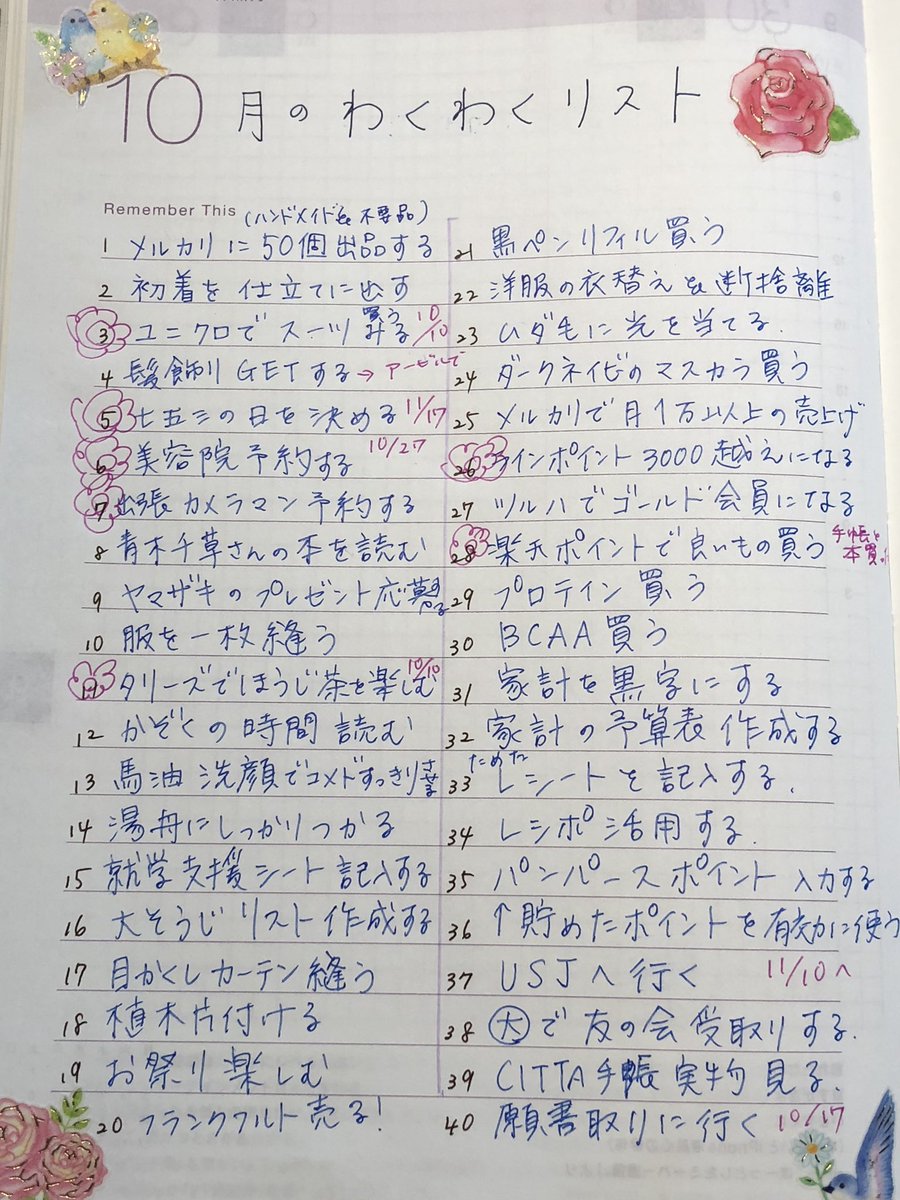 10月のわくわくリスト
Remember This (ハンドメイド& 不要品)
1 メルカリに50個出品する
2 初着を仕立てに出す
3 ユニクロでスーツ買う みる 10/10
4 髪飾り GETする→アービルで
5 七五三の日を決める 11/17
6 美容院予約する 10/27
7 出張カメラマン予約する
8 青木千草さんの本を読む
9 ヤマザキのプレゼント応募する
10 服を一枚縫う
11 タリーズでほうじ茶を楽しむ 10/10
12 かぞくの時間 読む
13 馬油洗顔でコメドすっきりさせる
14 湯舟にしっかりつかる
15 就学支援シート記入する
16 大そうじリスト作成する
17 目かくしカーテン縫う
18 植木片付ける
19 お祭り楽しむ
20 フランクフルト売る!
21 黒ペンリフィル買う
22 洋服の衣替え& 断捨離
23 ムダ毛に光を当てる.
24 ダークネイビのマスカラ買う
25 メルカリで月1万以上の売上げ
26 ラインポイント3000越えになる
27 ツルハでゴールド会員になる
28 楽天ポイントで良いもの買う 手帳と本買った
29 プロテイン買う
30 BCAA買う
31 家計を黒字にする
32 家計の予算表作成する
33 ためたレシートを記入する.
34 レシポ活用する.
35 パンパースポイント入力する
36 ↑貯めたポイントを有効に使う
37 USJへ行く 11/10へ
38 大で友の会受取りする.
39 CITTA手帳実物見る.
40 願書取りに行く 10/17